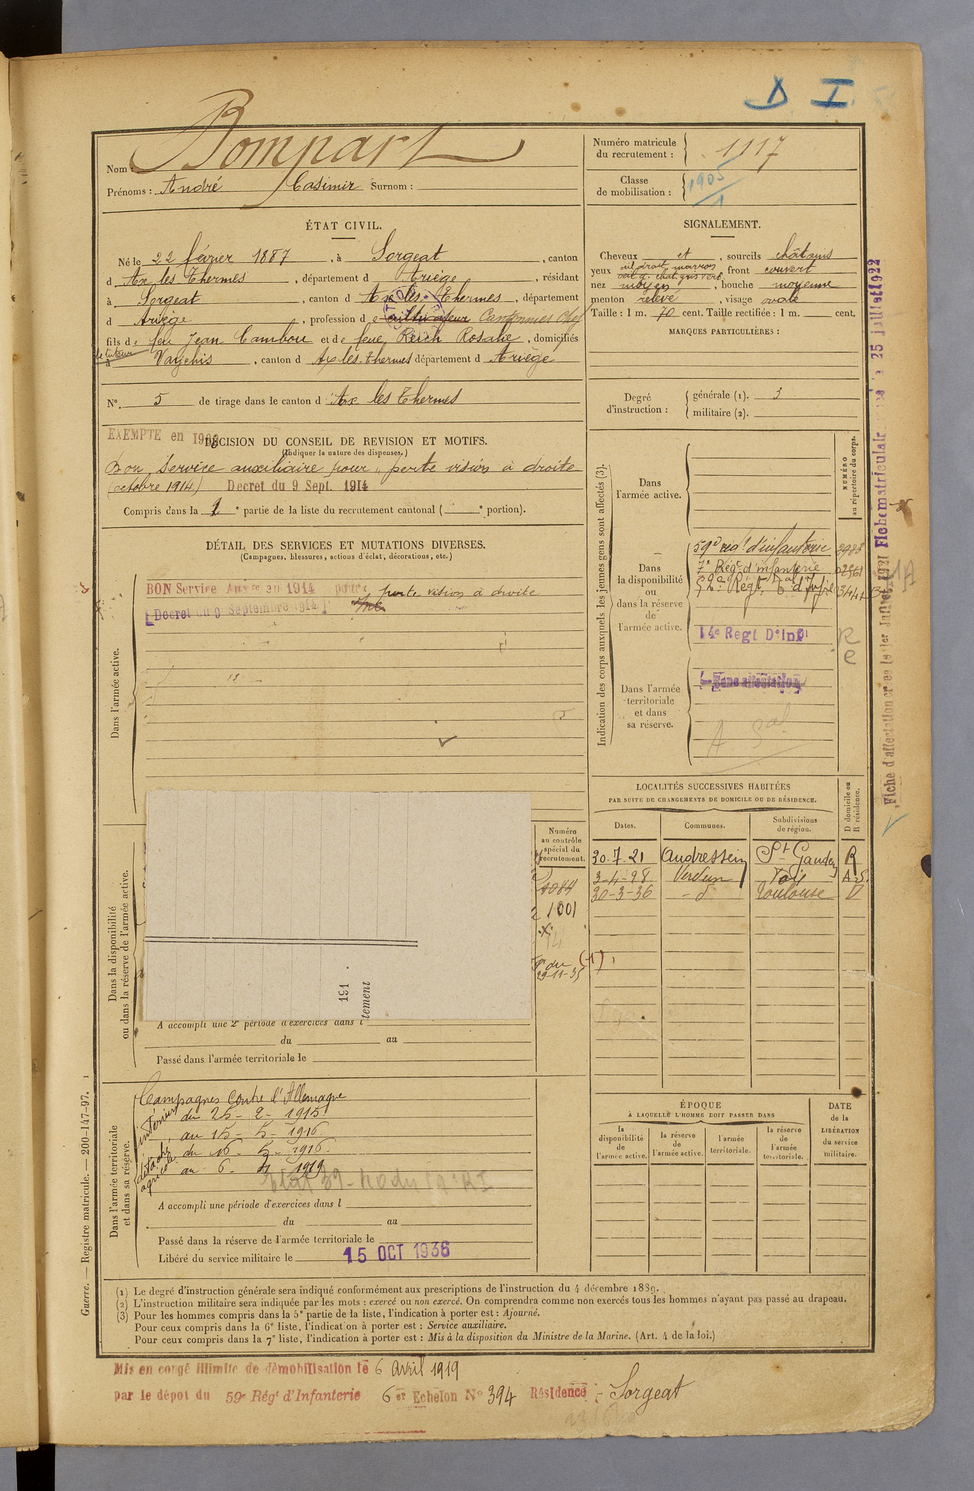 D I
Nom Bompart
Prénoms : André Casimir Surnom :
Numéro matricule du recrutement : 1117
Classe de mobilisation : 1905
ÉTAT CIVIL.
Né le 22 février 1887, à Sorgeat, canton
d'Ax les Thermes, département d Ariège, résidant
à Sorgeat, canton d'Ax les Thermes, département
d Ariège, profession de cultivateur Cantonnier
fils de feu Jean Cambou et de feue Reich Rosalie, domiciliés
à Vaychis, canton d Ax les Thermes département d Ariège
N° 5 de tirage dans le canton d'Ax les Thermes
SIGNALEMENT.
Cheveux et, sourcils châtains
yeux œil droit marron, front couvert
nez moyen, bouche moyenne
menton relevé, visage ovale
Taille : 1 m. 70 cent. Taille rectifiée : 1 m. cent.
MARQUES PARTICULIÈRES :
Degré d'instruction : générale (1). 3
militaire (2).
EXEMPTE en 190
DÉCISION DU CONSEIL DE REVISION ET MOTIFS.
(Indiquer la nature des dispenses.)
Bon Service auxiliaire pour perte vision à droite
(octobre 1914) Decret du 9 Sept. 1914
Compris dans la 1e partie de la liste du recrutement cantonal ( e portion).
DÉTAIL DES SERVICES ET MUTATIONS DIVERSES.
(Campagnes, blessures, actions d'éclat, décorations, etc.)
Dans l'armée active.
BON Service Auxre en 1914 pour perte vision à droite
Decret du 9 Septembre 1914
Indication des corps auxquels les jeunes gens sont affectés (3).
NUMÉRO au répertoire du corps.
Dans l'armée active.
Dans la disponibilité ou dans la réserve de l'armée active.
59e rég. d'infanterie
7e Rég. d'infanterie
14e Regt D'Infie
Dans l'armée territoriale et dans sa réserve.
Sans affectation
Fiche matriculair
25 juillet 1922
LOCALITÉS SUCCESSIVES HABITÉES
PAR SUITE DE CHANGEMENTS DE DOMICILE OU DE RÉSIDENCE.
Dates. Communes. Subdivisions de région. D domicile ou R résidence.
30.7.21 St Gaudens R
3-4-28 Verdun
30-3-36 d° Toulouse D
Dans la disponibilité ou dans la réserve de l'armée active.
Numéro au contrôle spécial du recrutement.
1001
191 .
tement
A accompli une 2e période d'exercices dans l
du au
Passé dans l'armée territoriale le
Dans l'armée territoriale et dans sa réserve.
Campagnes contre l'Allemagne
intérieur du 25-2-1915
au 15-5-1916
du 16-5-1916
au 6-4-1919
A accompli une période d'exercices dans l
du au
Passé dans la réserve de l'armée territoriale le
Libéré du service militaire le 15 OCT 1936
ÉPOQUE
À LAQUELLE L'HOMME DOIT PASSER DANS
la disponibilité de l'armée active.
la réserve de l'armée active.
l'armée territoriale.
la réserve de l'armée territoriale.
DATE de la LIBÉRATION du service militaire.
(1) Le degré d'instruction générale sera indiqué conformément aux prescriptions de l'instruction du 4 décembre 1889.
(2) L'instruction militaire sera indiquée par les mots : exercé ou non exercé. On comprendra comme non exercés tous les hommes n'ayant pas passé au drapeau.
(3) Pour les hommes compris dans la 5e partie de la liste, l'indication à porter est : Ajourné.
Pour ceux compris dans la 6e liste, l'indication à porter est : Service auxiliaire.
Pour ceux compris dans la 7e liste, l'indication à porter est : Mis à la disposition du Ministre de la Marine. (Art. 4 de la loi.)
Guerre. — Registre matricule. — 200-147-97.
Mis en congé illimité de démobilisation le 6 avril 1919
par le dépot du 59e Régt d'Infanterie 6er Echelon N° 394 Résidence : Sorgeat